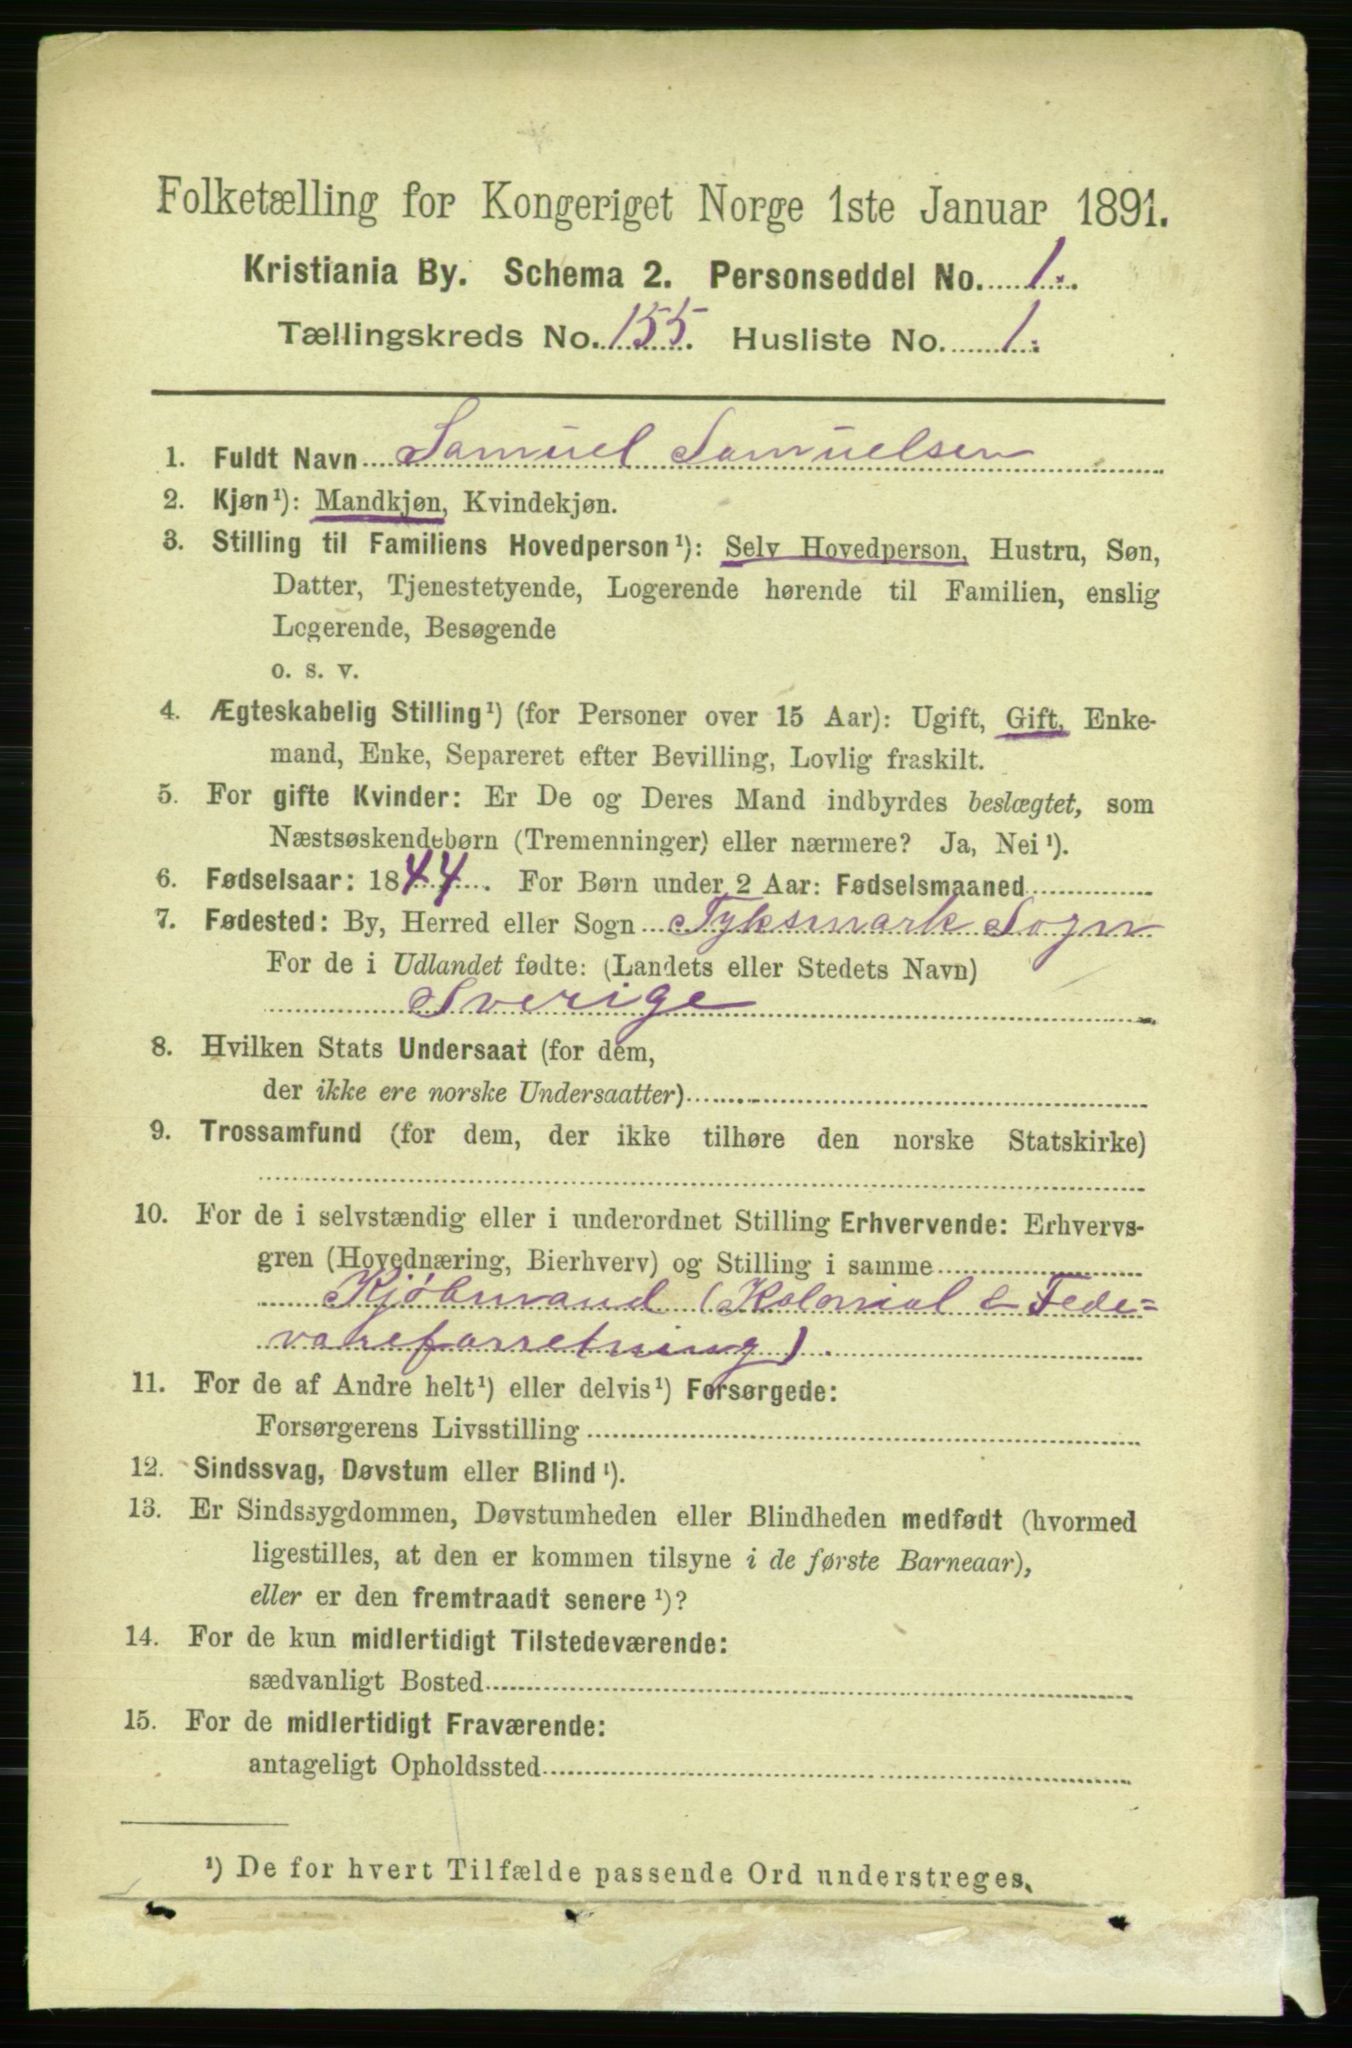 Folketælling for Kongeriget Norge 1ste Januar 1891.
Kristiania By. Schema 2. Personseddel No. 1.
Tællingskreds No. 155. Husliste No. 1.
1. Fuldt Navn Samuel Samuelsen
2. Kjøn¹): Mandkjøn, Kvindekjøn.
3. Stilling til Familiens Hovedperson¹): Selv Hovedperson, Hustru, Søn,
Datter, Tjenestetyende, Logerende hørende til Familien, enslig
Logerende, Besøgende
o. s. v.
4. Ægteskabelig Stilling¹) (for Personer over 15 Aar): Ugift, Gift, Enke-
mand, Enke, Separeret efter Bevilling, Lovlig fraskilt.
5. For gifte Kvinder: Er De og Deres Mand indbyrdes beslægtet, som
Næstsøskendebørn (Tremenninger) eller nærmere? Ja, Nei¹).
6. Fødselsaar: 1844. For Børn under 2 Aar: Fødselsmaaned
7. Fødested: By, Herred eller Sogn Tyksmark Sogn
For de i Udlandet fødte: (Landets eller Stedets Navn)
Sverige
8. Hvilken Stats Undersaat (for dem,
der ikke ere norske Undersaatter)
9. Trossamfund (for dem, der ikke tilhøre den norske Statskirke)
10. For de i selvstændig eller i underordnet Stilling Erhvervende: Erhvervs-
gren (Hovednæring, Bierhverv) og Stilling i samme
Kjøbmand (Kolonial & Fede=
vareforretning).
11. For de af Andre helt¹) eller delvis¹) Forsørgede:
Forsørgerens Livsstilling
12. Sindssvag, Døvstum eller Blind¹).
13. Er Sindssygdommen, Døvstumheden eller Blindheden medfødt (hvormed
ligestilles, at den er kommen tilsyne i de første Barneaar),
eller er den fremtraadt senere¹)?
14. For de kun midlertidigt Tilstedeværende:
sædvanligt Bosted
15. For de midlertidigt Fraværende:
antageligt Opholdssted
¹) De for hvert Tilfælde passende Ord understreges.